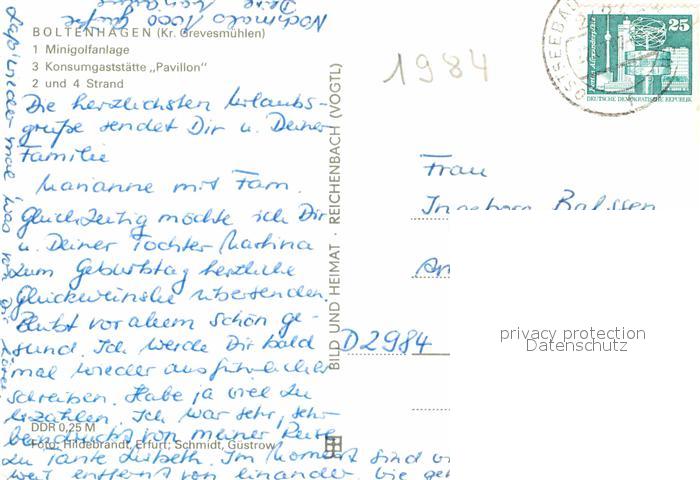 Nochmals 1000 Grüße
BOLTENHAGEN (Kr. Grevesmühlen)
1 Minigolfanlage
3 Konsumgaststätte „Pavillon"
2 und 4 Strand
Die herzlichsten Urlaubs-
grüße sendet Dir u. Deiner
Familie
Marianne mit Fam.
Gleichzeitig möchte ich Dir
u. Deiner Tochter Martina
zum Geburtstag herzliche
Glückwünsche übersenden.
Bleibt vor allem schön ge-
sund. Ich werde Dir bald
mal wieder ausführlicher
schreiben. Habe ja viel zu
erzählen. Ich war sehr, sehr
beeindruckt von meiner Reise
zu Tante Lisbeth. Im Moment sind
weit entfernt von einander.
DDR 0,25 M
Foto: Hildebrandt, Erfurt; Schmidt, Güstrow
Laß wieder mal was von Dir hören
BILD UND HEIMAT · REICHENBACH (VOGTL)
1984
OSTSEEBAD
25
Berlin, Alexanderplatz
DEUTSCHE DEMOKRATISCHE REPUBLIK
Frau
Ingeborg
An
D2984
privacy protection
Datenschutz